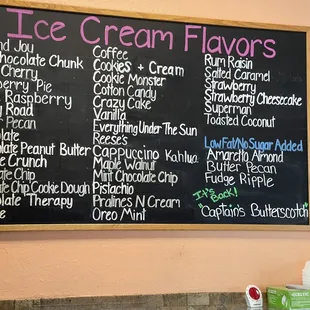 Ice Cream Flavors
nd Joy
hocolate Chunk
Cherry
erry Pie
Raspberry
y Road
Pecan
late
late Peanut Butter
e Crunch
ate Chip
ate Chip Cookie Dough
olate Therapy
e
Coffee
Cookies + Cream
Cookie Monster
Cotton Candy
Crazy Cake
Vanilla
Everything Under The Sun
Reeses
Cappuccino Kahlua
Maple Walnut
Mint Chocolate Chip
Pistachio
Pralines N Cream
Oreo Mint
Rum Raisin
Salted Caramel
Strawberry
Strawberry Cheesecake
Superman
Toasted Coconut
Low Fat/No Sugar Added
Amaretto Almond
Butter Pecan
Fudge Ripple
It's Back!
"Captain's Butterscotch"